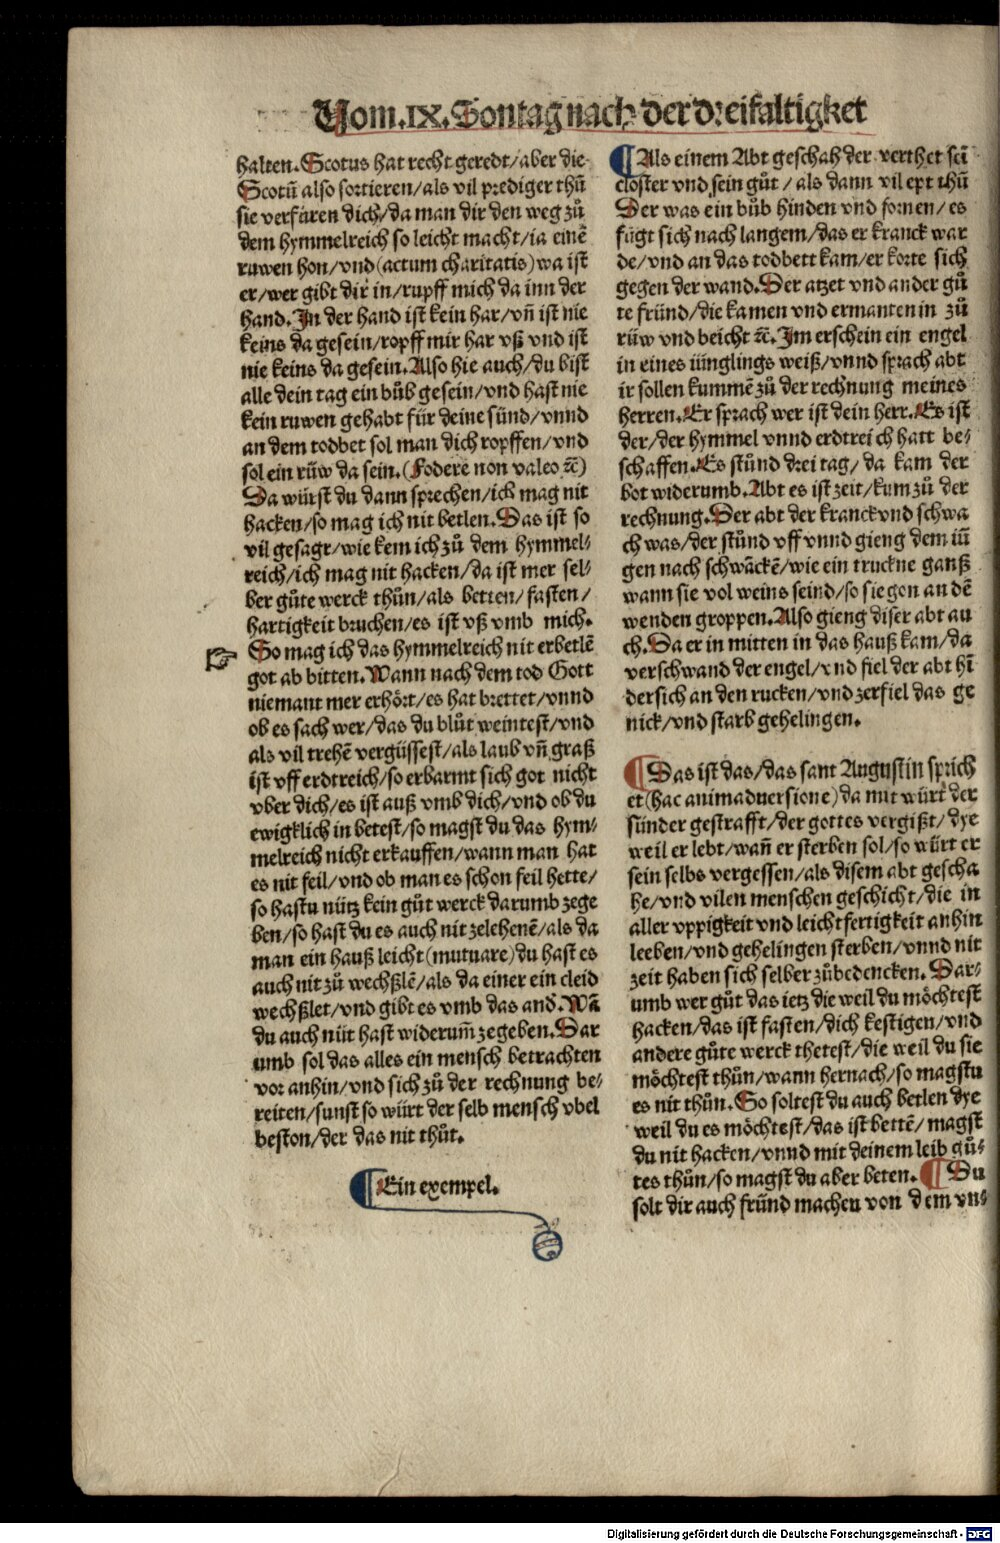 Vom.IX.Sontag nach der dreifaltigket
halten.Scotus hat recht geredt/aber die
Scotū also sortieren/als vil prediger thū
sie verfüren dich/da man dir den weg zů
dem hymmelreich so leicht macht/ia einē
ruwen hon/vnd(actum charitatis)wa ist
er/wer gibt dir in/rupff mich da inn der
hand.In der hand ist kein har/vn̄ ist nie
keins da gesein/ropff mir har vß vnd ist
nie keins da gesein.Also hie auch/du bist
alle dein tag ein bůb gesein/vnd hast nie
kein ruwen gehabt für deine sünd/vnnd
an dem todbet sol man dich ropffen/vnd
sol ein rüw da sein.(Fodere non valeo ꝛc̄)
Da würst du dann sprechen/ich mag nit
hacken/so mag ich nit betlen.Das ist so
vil gesagt/wie kem ich zů dem hymmel⸗
reich/ich mag nit hacken/da ist mer sel⸗
ber gůte werck thůn/als betten/fasten/
hartigkeit bruchen/es ist vß vmb mich.
So mag ich das hymmelreich nit erbetlē
got ab bitten.Wann nach dem tod Gott
niemant mer erhört/es hat brettet/vnnd
ob es sach wer/das du blůt weintest/vnd
als vil trehē vergüssest/als laub vn̄ graß
ist vff erdtreich/so erbarmt sich got nicht
vber dich/es ist auß vmb dich/vnd ob du
ewigklich in betest/so magst du das hym⸗
melreich nicht erkauffen/wann man hat
es nit feil/vnd ob man es schon feil hette/
so hastu nütz kein gůt werck darumb zege
ben/so hast du es auch nit zelehenē/als da
man ein hauß leicht(mutuare)du hast es
auch nit zů wechßlē/als da einer ein cleid
wechßlet/vnd gibt es vmb das and̄.Wā
du auch nüt hast widerum̄ zegeben.Dar
umb sol das alles ein mensch betrachten
vor anhin/vnd sich zů der rechnung be⸗
reiten/sunst so würt der selb mensch vbel
beston/der das nit thůt.
¶Ein exempel.
¶Als einem Abt geschah der verthet sei
closter vnd sein gůt/als dann vil ept thū
Der was ein bůb hinden vnd fornen/es
fügt sich nach langem/das er kranck war
de/vnd an das todbett kam/er korte sich
gegen der wand.Der atzet vnd ander gů
te fründ/die kamen vnd ermanten in zů
rüw vnd beicht ꝛc̄.Im erschein ein engel
in eines iünglings weiß/vnnd sprach abt
ir sollen kummē zů der rechnung meines
herren.Er sprach wer ist dein herr.Es ist
der/der hymmel vnnd erdtreich hatt be⸗
schaffen.Es stůnd drei tag/da kam der
bot widerumb.Abt es ist zeit/kum zů der
rechnung.Der abt der kranck vnd schwa
ch was/der stůnd vff vnnd gieng dem iū
gen nach schwāckē/wie ein truckne ganß
wann sie vol weins seind/so sie gon an dē
wenden groppen.Also gieng diser abt au
ch.Da er in mitten in das hauß kam/da
verschwand der engel/vnd fiel der abt hī
dersich an den rucken/vnd zerfiel das ge
nick/vnd starb gehelingen.
¶Das ist das/das sant Augustin sprich
et(hac animaduersione)da mit würt der
sünder gestrafft/der gottes vergißt/dye
weil er lebt/wan̄ er sterben sol/so würt er
sein selbs vergessen/als disem abt gescha
he/vnd vilen menschen geschicht/die in
aller vppigkeit vnd leichtfertigkeit anhin
leeben/vnd gehelingen sterben/vnnd nit
zeit haben sich selber zůbedencken.Dar⸗
umb wer gůt das ietz die weil du möchtest
hacken/das ist fasten/dich kestigen/vnd
andere gůte werck thetest/die weil du sie
möchtest thůn/wann hernach/so magstu
es nit thůn.So soltest du auch betlen dye
weil du es möchtest/das ist bettē/magst
du nit hacken/vnnd mit deinem leib gů⸗
tes thůn/so magst du aber beten.¶Du
solt dir auch fründ machen von dem vn⸗
Digitalisierung gefördert durch die Deutsche Forschungsgemeinschaft - DFG